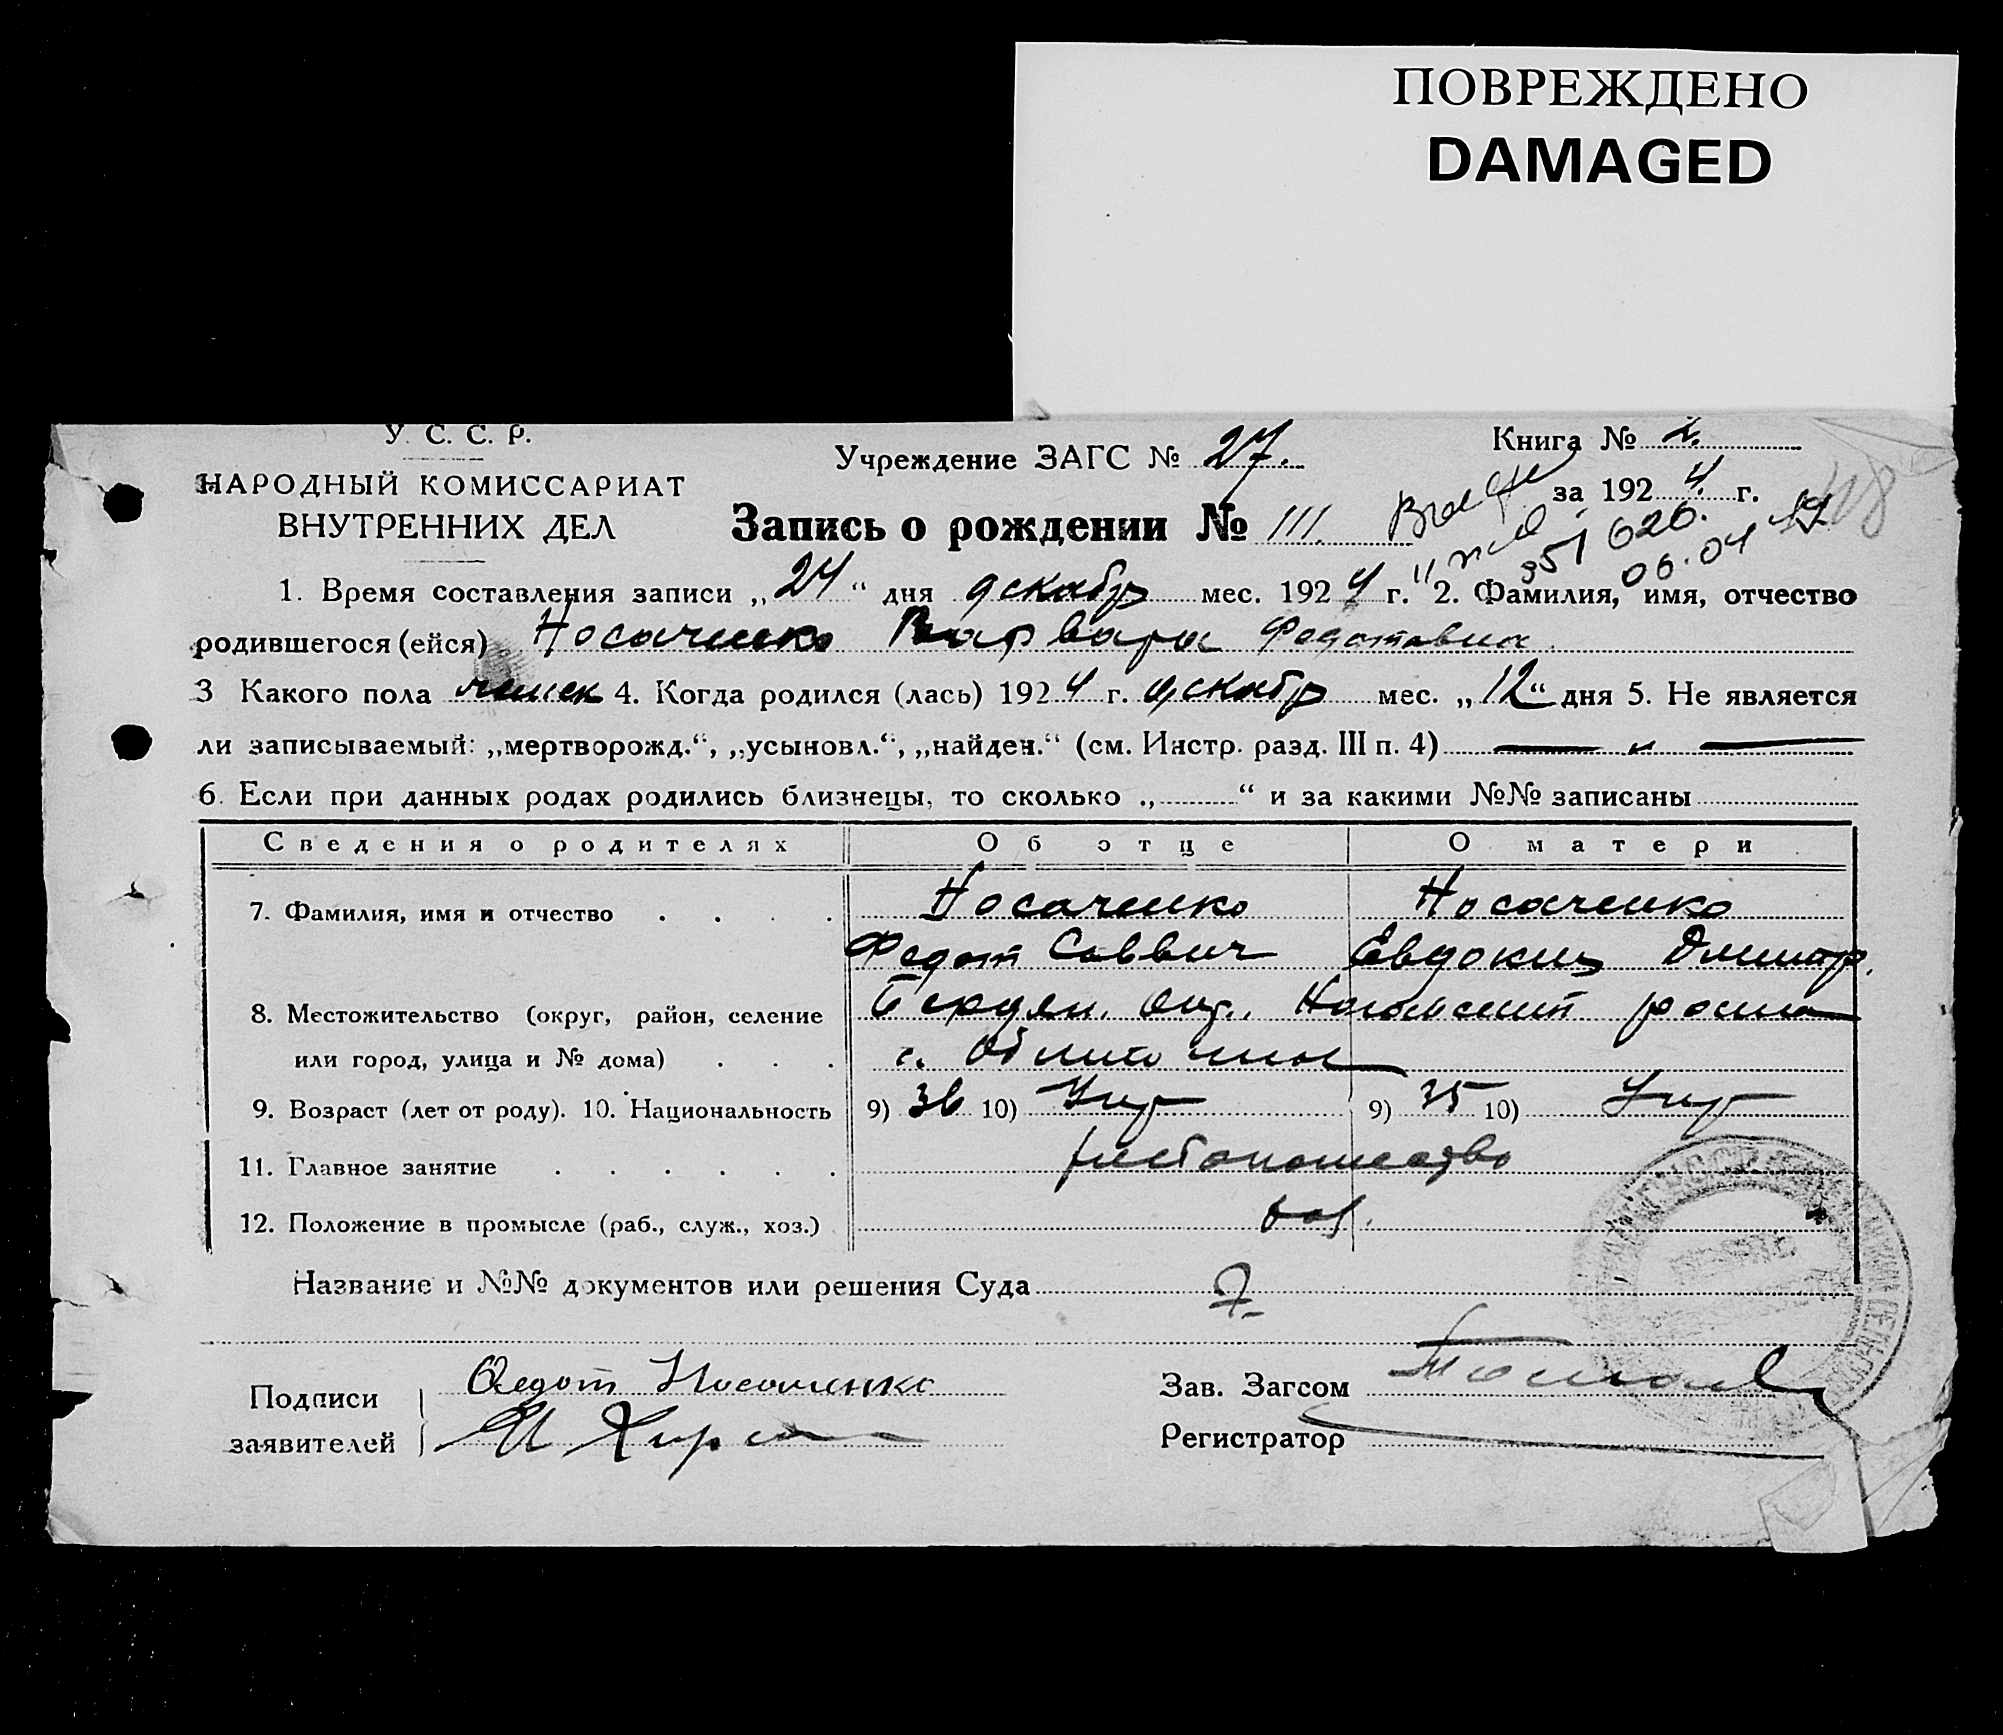 ПОВРЕЖДЕНО
DAMAGED
У. С. С. Р.
НАРОДНЫЙ КОМИССАРИАТ
ВНУТРЕННИХ ДЕЛ
Учреждение ЗАГС № 27.
Книга № 2.
за 1924 г.
Запись о рождении № 111.
351 626.
06.04
1. Время составления записи „24“ дня декабр мес. 1924 г. 2. Фамилия, имя, отчество
родившегося (ейся) Носаченко Варвара Федотовна
3 Какого пола женск 4. Когда родился (лась) 1924 г. декабр мес. „12“ дня 5. Не является
ли записываемый: „мертворожд.“, „усыновл.“, „найден.“ (см. Инстр. разд. III п. 4) — „ —
6. Если при данных родах родились близнецы, то сколько „ “ и за какими №№ записаны
Сведения о родителях Об отце О матери
7. Фамилия, имя и отчество Носаченко Носаченко
Федот Саввич Евдокия Дмитр.
8. Местожительство (округ, район, селение Бердян. окр., Ногайский район
или город, улица и № дома) с. Обиточное
9. Возраст (лет от роду). 10. Национальность 9) 36 10) Укр 9) 35 10) Укр
11. Главное занятие хлебопашество
12. Положение в промысле (раб., служ., хоз.) хоз.
Название и №№ документов или решения Суда
Подписи Федот Носаченко
заявителей
Зав. Загсом
Регистратор